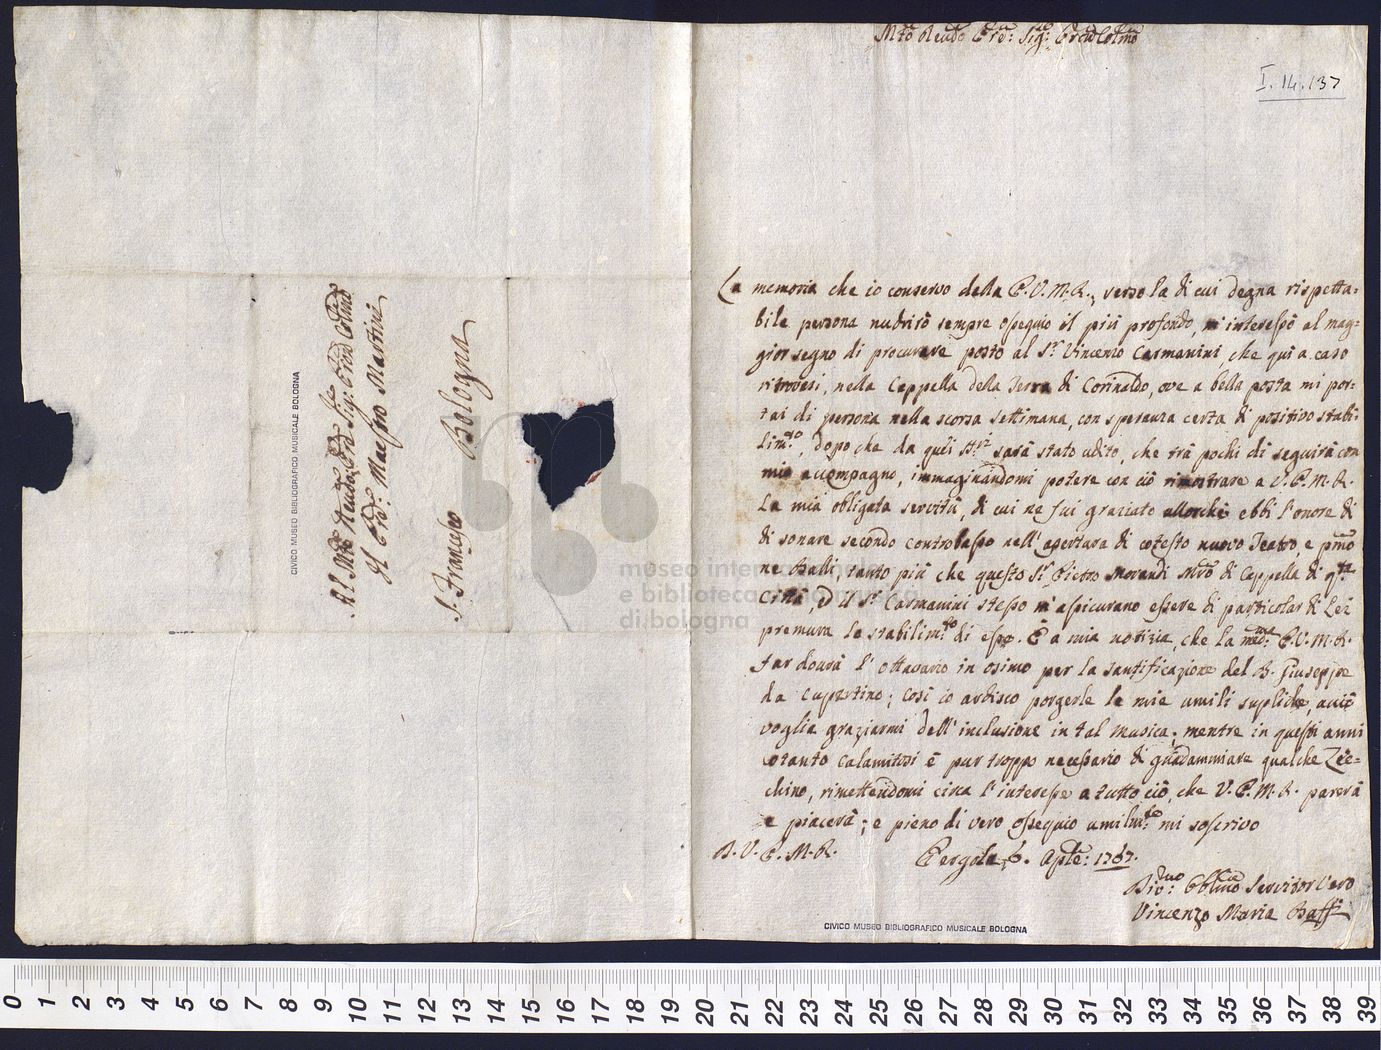 Mto Revdo Pre: Sigr: Pron Colmo
I. 14. 137
La memoria che io conservo della P.V.M.R., verso la di cui degna rispetta=
bile persona nudrirò sempre ossequio il più profondo, m'interessò al mag=
gior segno di procurare posto al Sr. Vincenzo Carmanini, che quì a caso
ritrovasi, nella Cappella della Terra di Corinaldo, ove a bella posta mi por=
tai di persona nella scorsa settimana, con speranza certa di positivo stabi=
limto, dopo che da quei Sri sarà stato udito, che trà pochi dì seguirà con
mio accompagno, immaginandomi potere con ciò rimostrare a V.P.M.R.
La mia obligata servitù, di cui ne fui graziato allorchè ebbi l'onore di
di sonare secondo controbasso nell'apertura di cotesto nuovo Teatro, e pmo
ne Balli, tanto più che questo Sr. Pietro Morandi Mro di Cappella di qta
Città, ed il Sr. Carmanini stesso m'assicurano essere di particolar di Lei
premura lo stabilimto di esso. È a mia notizia, che la medma P.V.M.R.
far dovrà l'ottavario in Osimo per la santificazione del B. Giuseppe
da Cupertino; così io ardisco porgerle le mie umili supliche, acciò
voglia graziarmi dell'inclusione in tal musica; mentre in questi anni
cotanto calamitosi è pur troppo necessario di guadammiare qualche Zec=
chino, rimettendomi circa l'interesse a tutto ciò, che V.P.M.R. parerà
e piacerà; e pieno di vero ossequio umilmte mi soscrivo
D. V. P. M. R.
Pergola 6. Aple: 1767.
Divo: Obblmo Servitor Vero
Vincenzo Maria Baffi
CIVICO MUSEO BIBLIOGRAFICO MUSICALE BOLOGNA
Al Mto Revdo Pre Sig: Pron Colmo
Il Prd: Maestro Martini
S. Francesco Bologna
CIVICO MUSEO BIBLIOGRAFICO MUSICALE BOLOGNA
museo internazionale
e biblioteca della musica
di bologna
0 1 2 3 4 5 6 7 8 9 10 11 12 13 14 15 16 17 18 19 20 21 22 23 24 25 26 27 28 29 30 31 32 33 34 35 36 37 38 39